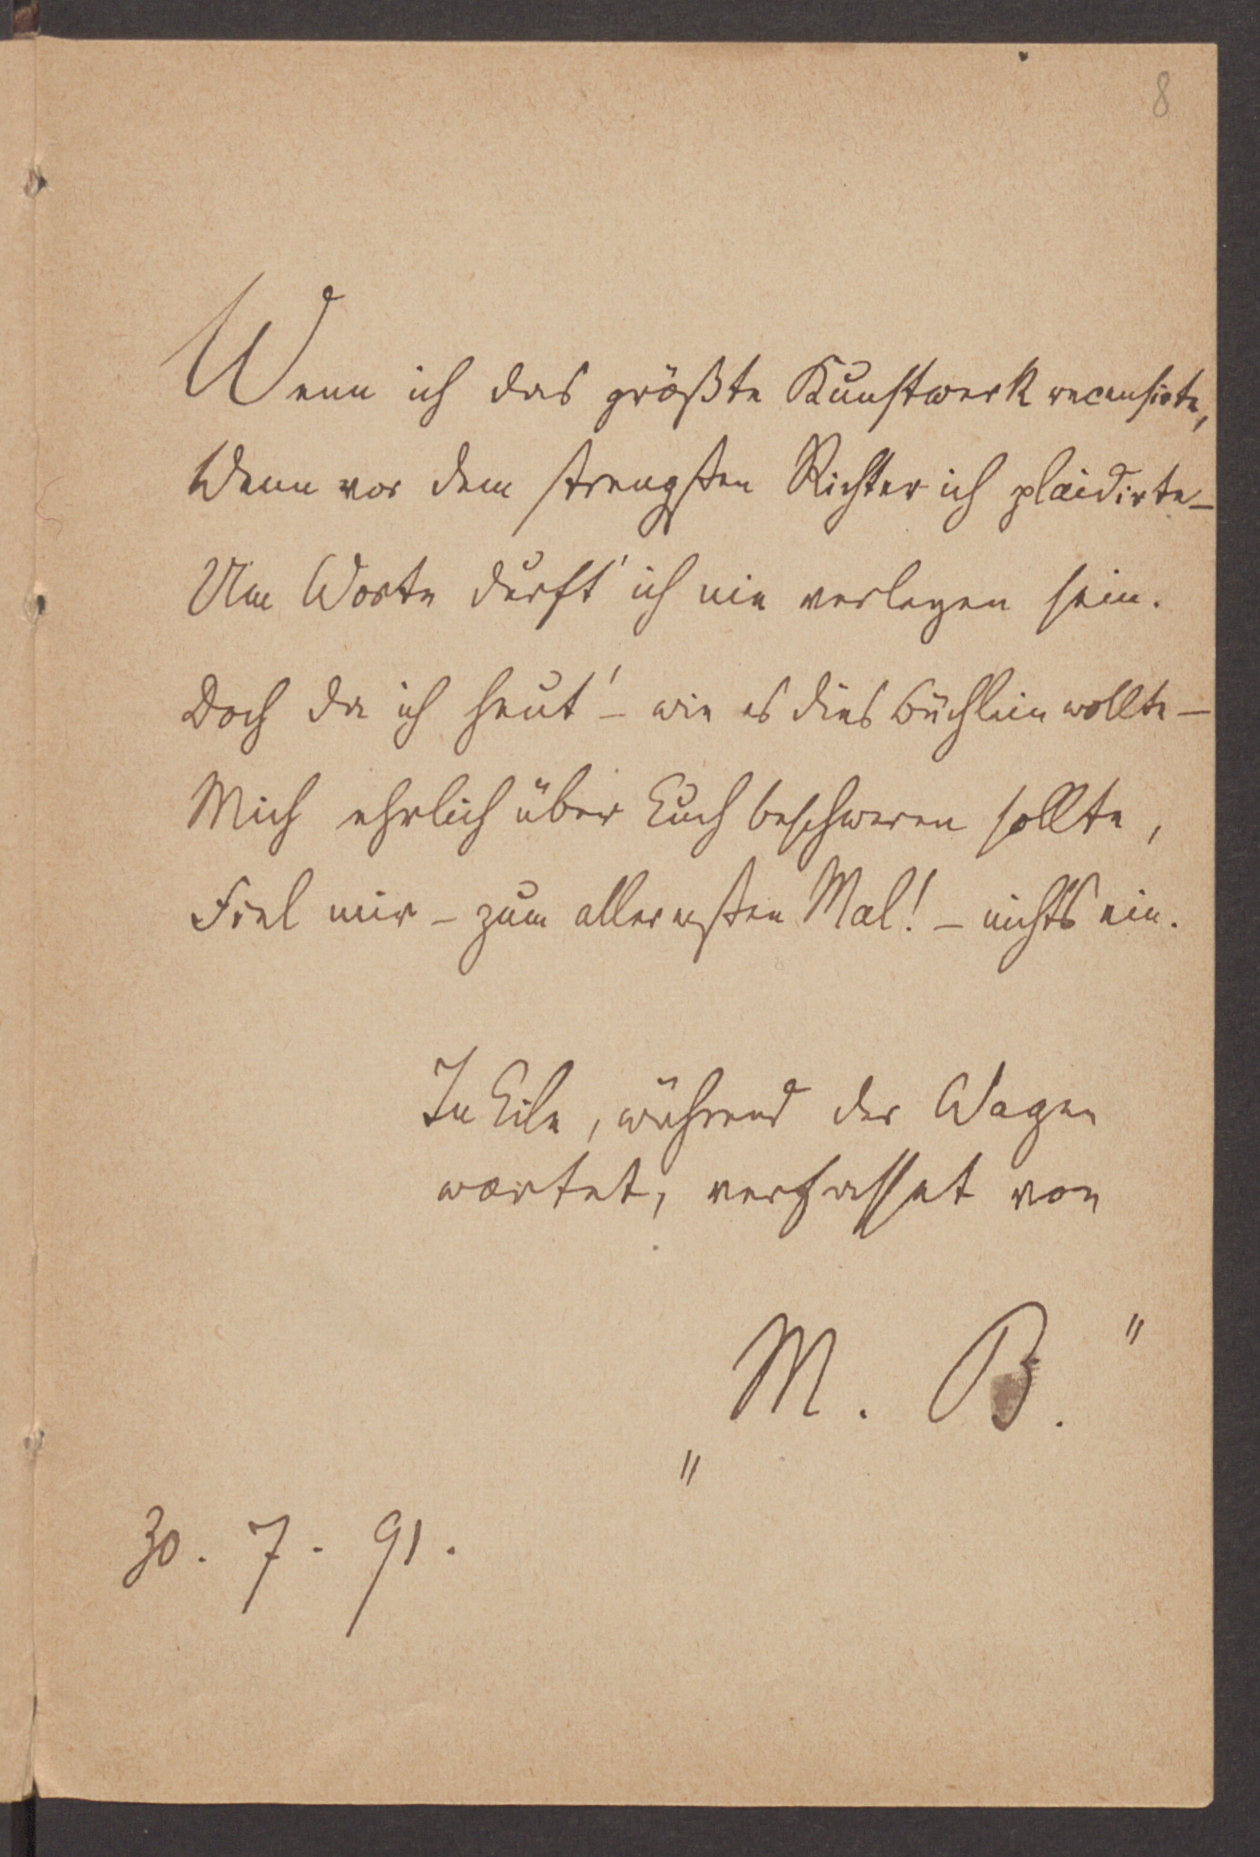 8
Wenn ich das größte Kunstwerk recensirte,
Wenn vor dem strengsten Richter ich plaidirte –
Um Worte durft' ich nie verlegen sein.
Doch da ich heut' – wie es dies Büchlein wollte –
Mich ehrlich über Euch beschweren sollte,
Fiel mir – zum allerersten Mal! – nichts ein.
In Eile, während der Wagen
wartet, verfasset von
„M. B."
30. 7. 91.